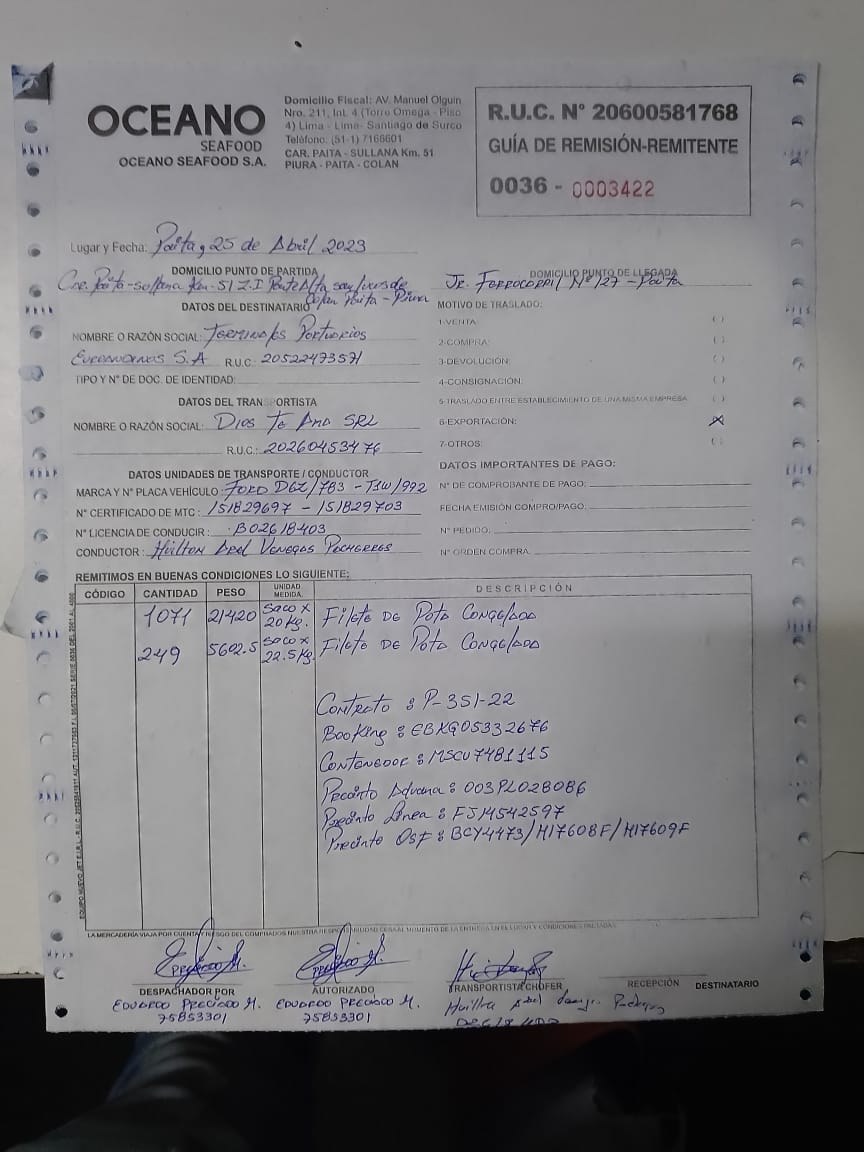 OCEANO
SEAFOOD
OCEANO SEAFOOD S.A.
Domicilio Fiscal: AV. Manuel Olguin
Nro. 211, Int. 4 (Torre Omega - Piso
4) Lima - Lima- Santiago de Surco
Teléfono: (51-1) 7166601
CAR. PAITA - SULLANA Km. 51
PIURA - PAITA - COLAN
R.U.C. N° 20600581768
GUÍA DE REMISIÓN-REMITENTE
0036 - 0003422
Lugar y Fecha: Paita, 25 de Abril 2023
DOMICILIO PUNTO DE PARTIDA
Cre. Paita-sullana Km-51 Z.I Parte Alta
Colan Paita - Piura
DOMICILIO PUNTO DE LLEGADA
Jr. Ferrocarril N° 127 - Paita
DATOS DEL DESTINATARIO
NOMBRE O RAZÓN SOCIAL: Terminales Portuarios
Euroandinos S.A R.U.C: 20522473571
TIPO Y N° DE DOC. DE IDENTIDAD:
MOTIVO DE TRASLADO:
1-VENTA ( )
2-COMPRA: ( )
3-DEVOLUCIÓN: ( )
4-CONSIGNACIÓN: ( )
5-TRASLADO ENTRE ESTABLECIMIENTO DE UNA MISMA EMPRESA ( )
6-EXPORTACIÓN: (X)
7-OTROS: ( )
DATOS DEL TRANSPORTISTA
NOMBRE O RAZÓN SOCIAL: Dios Te Ama SRL
R.U.C.: 20260453476
DATOS UNIDADES DE TRANSPORTE / CONDUCTOR
MARCA Y N° PLACA VEHÍCULO: FORD D6Z/783 - T3W/992
N° CERTIFICADO DE MTC: 151829697 - 151829703
N° LICENCIA DE CONDUCIR: B02618403
CONDUCTOR: Huilton Abel Venegas Pacherres
DATOS IMPORTANTES DE PAGO:
N° DE COMPROBANTE DE PAGO:
FECHA EMISIÓN COMPRO/PAGO:
N° PEDIDO:
N° ORDEN COMPRA:
REMITIMOS EN BUENAS CONDICIONES LO SIGUIENTE:
CÓDIGO CANTIDAD PESO UNIDAD MEDIDA. DESCRIPCIÓN
1071 21420 Saco x 20 kg. Filete DE Pota Congelada
249 5602.5 Saco x 22.5 kg. Filete DE Pota Congelada
Contrato : P-351-22
Booking : EBKG05332676
Contenedor : MSCU7481115
Precinto Aduana : 003PL028086
Precinto Linea : FJ14542597
Precinto OSF : BCY4473/H17608F/H17609F
LA MERCADERÍA VIAJA POR CUENTA Y RIESGO DEL COMPRADOR NUESTRA RESPONSABILIDAD CESA AL MOMENTO DE LA ENTREGA EN EL LUGAR Y CONDICIONES PACTADAS
DESPACHADOR POR
EDUARDO PRECIADO M.
75853301
AUTORIZADO
EDUARDO PRECIADO M.
75853301
TRANSPORTISTA CHÓFER
RECEPCIÓN DESTINATARIO